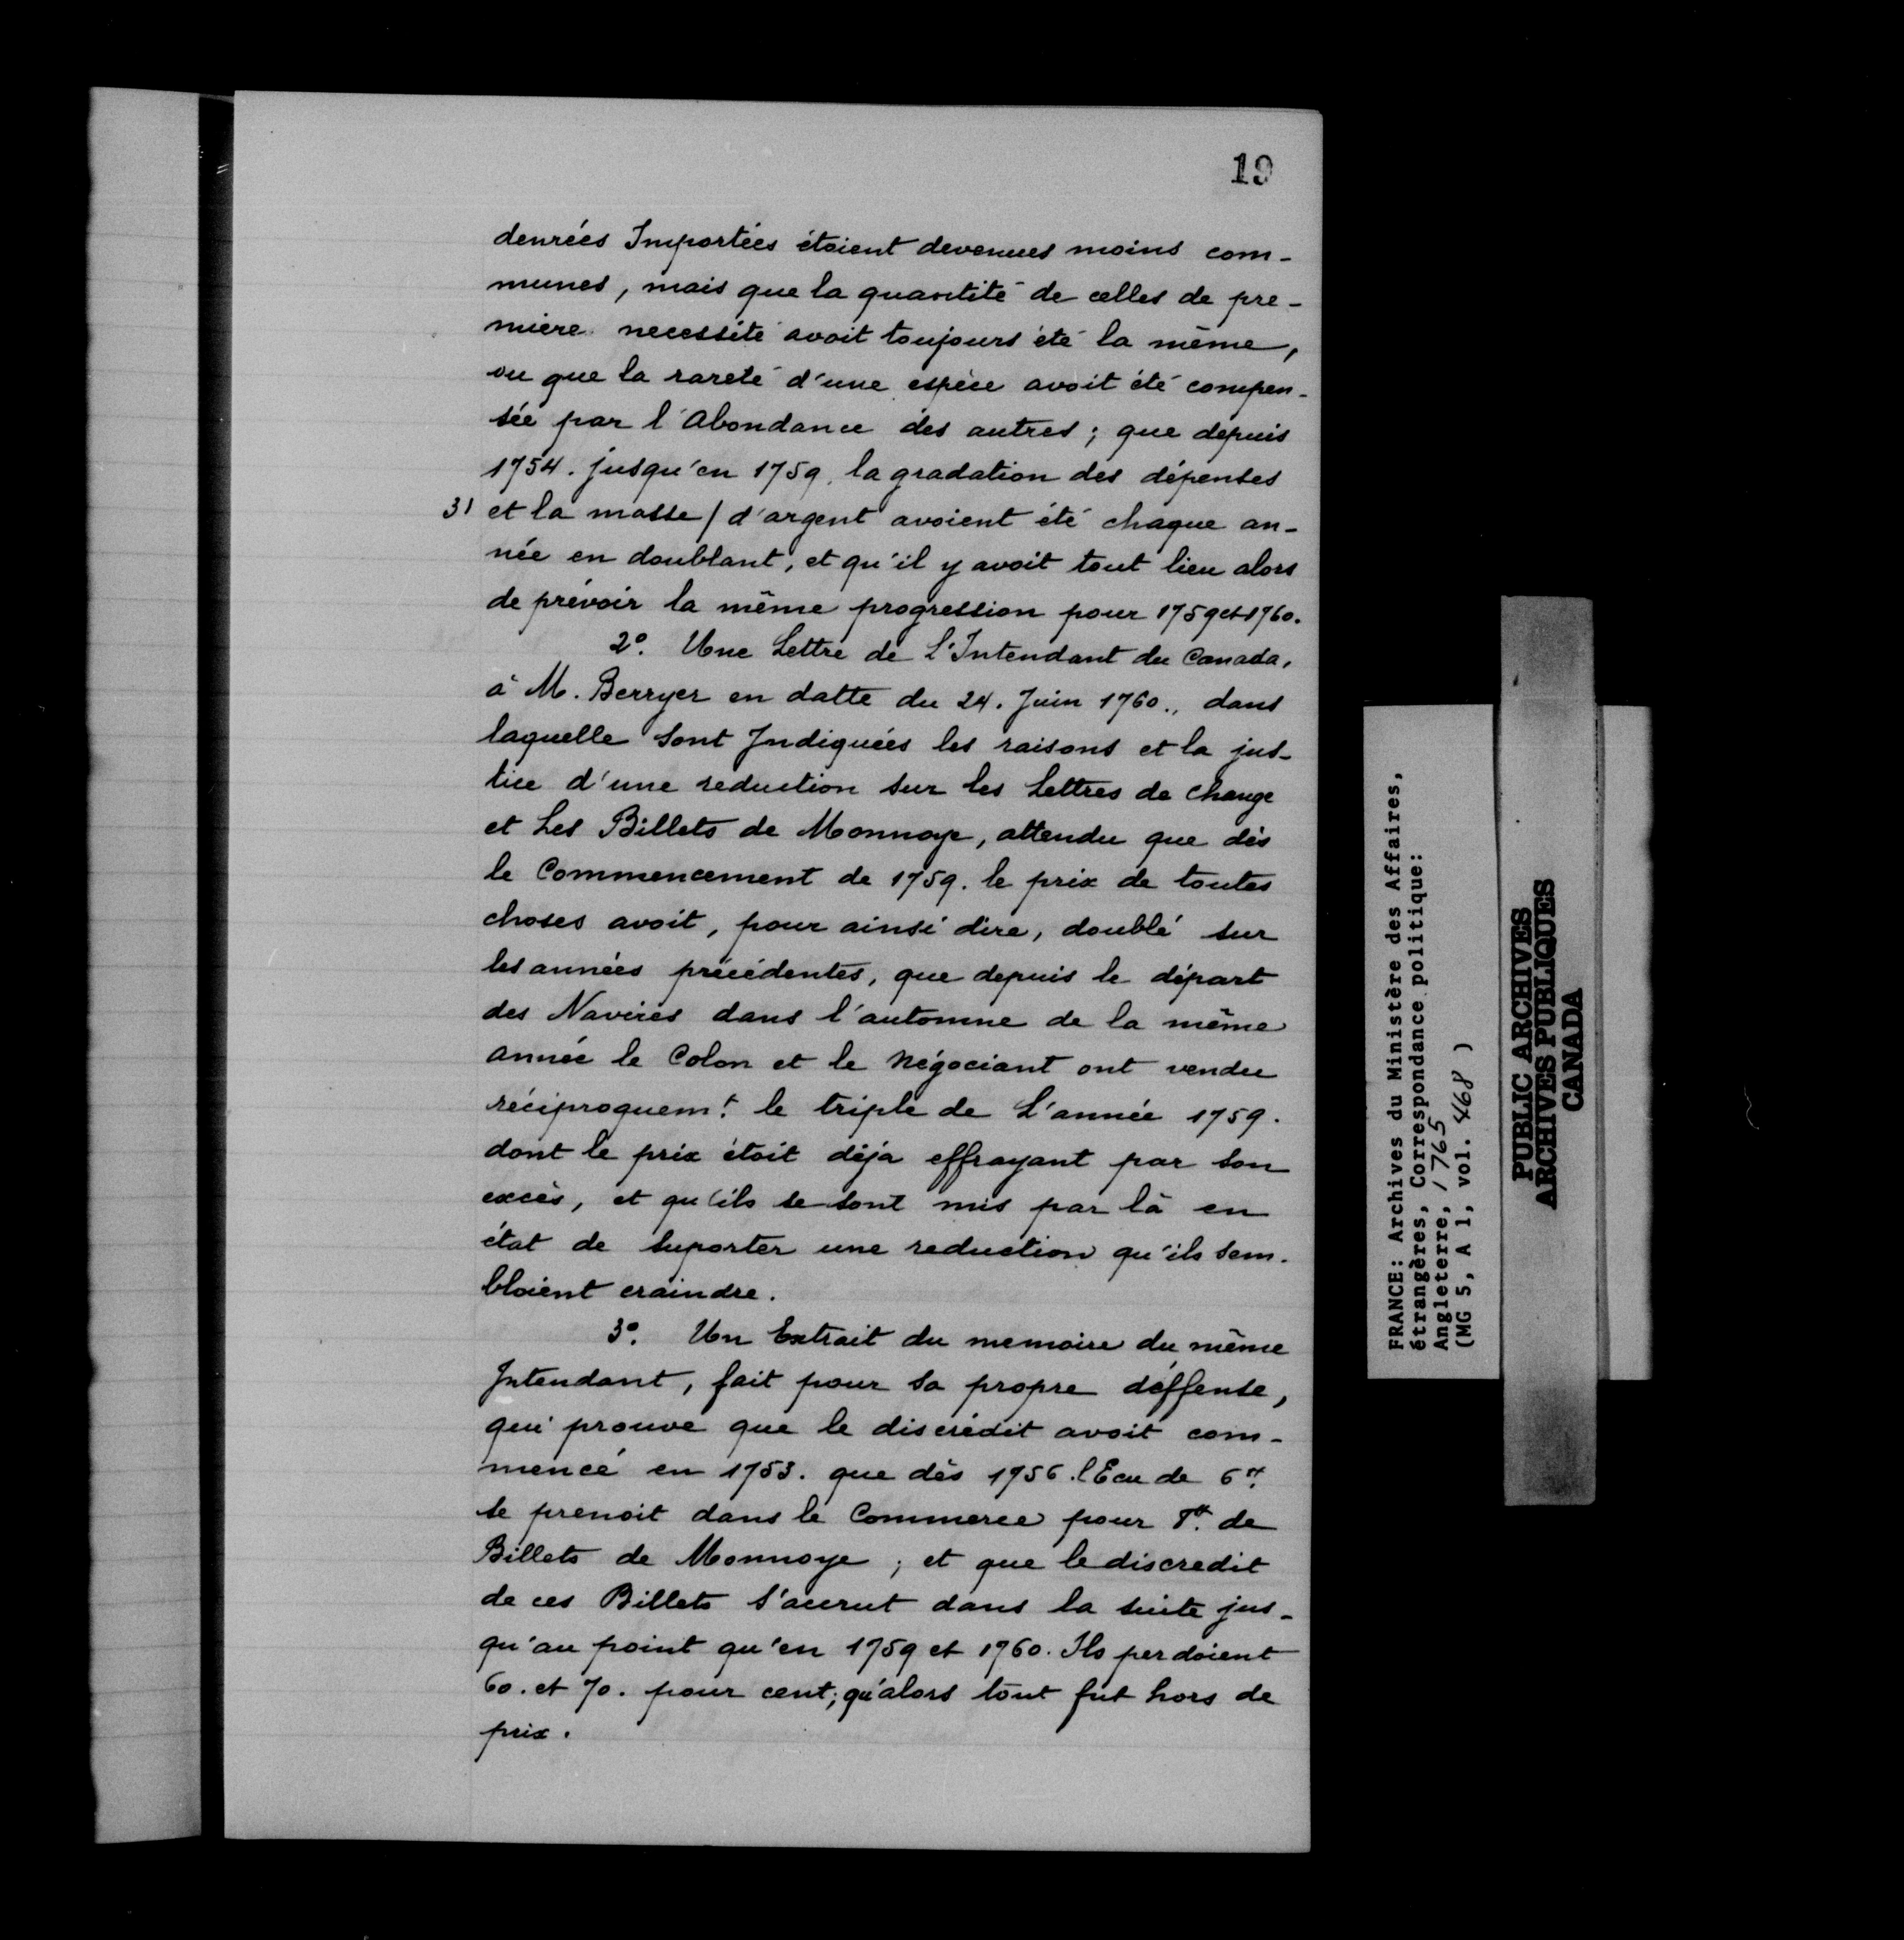 19
denrées Importées étoient devenues moins com-
munes, mais que la quantité de celles de pre-
miere necessité avoit toujours été la même,
ou que la rareté d'une espèce avoit été compen-
sée par l'Abondance des autres; que depuis
1754. jusqu'en 1759. la gradation des dépenses
31 et la masse / d'argent avoient été chaque an-
née en doublant, et qu'il y avoit tout lieu alors
de prévoir la même progression pour 1759 et 1760.
2º. Une Lettre de L'Intendant du Canada,
à M. Berryer en datte du 24. Juin 1760., dans
laquelle sont Indiquées les raisons et la jus-
tice d'une reduction sur les Lettres de change
et Les Billets de Monnoye, attendu que dès
le Commencement de 1759. le prix de toutes
choses avoit, pour ainsi dire, doublé sur
les années précédentes, que depuis le départ
des Navires dans l'automne de la même
année le Colon et le Négociant ont vendu
réciproquem.t le triple de L'année 1759.
dont le prix étoit déja effrayant par son
excès, et qu'ils se sont mis par là en
état de suporter une reduction qu'ils sem-
bloient craindre.
3º. Un Extrait du memoire du même
Intendant, fait pour sa propre déffense,
qui prouve que le discrédit avoit com-
mencé en 1753. que dès 1756. l'Ecu de 6#.
se prenoit dans le Commerce pour 8#. de
Billets de Monnoye; et que le discredit
de ces Billets s'accrut dans la suite jus-
qu'au point qu'en 1759 et 1760. Ils perdoient
60. et 70. pour cent; qu'alors tout fut hors de
prix.
FRANCE: Archives du Ministère des Affaires,
étrangères, Correspondance politique:
Angleterre, 1765
(MG 5, A 1, vol. 468 )
PUBLIC ARCHIVES
ARCHIVES PUBLIQUES
CANADA